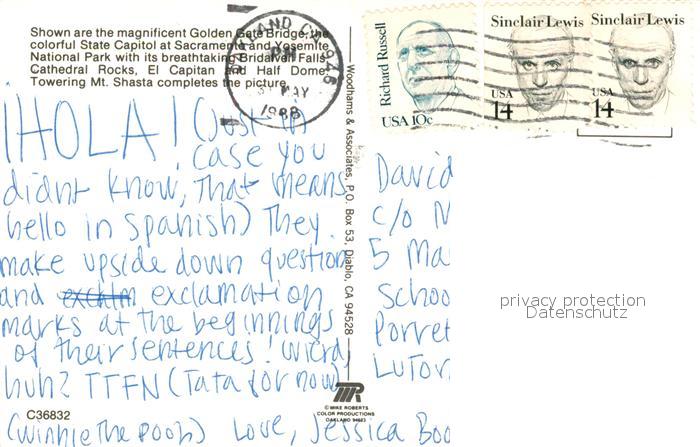 Shown are the magnificent Golden Gate Bridge, the
colorful State Capitol at Sacramento and Yosemite
National Park with its breathtaking Bridalveil Falls,
Cathedral Rocks, El Capitan and Half Dome.
Towering Mt. Shasta completes the picture.
OAKLAND CA 946
PM
MAY
1988
Richard Russell
USA 10c
Sinclair Lewis
USA
14
Sinclair Lewis
USA
14
¡HOLA! (Just in
case you
didnt know, that means
hello in Spanish) They
make upside down question
and exclam exclamation
marks at the beginnings
of their sentences! Wierd,
huh? TTFN (Tata for now)
(Winnie the Pooh) Love, Jessica Boo
Woodbams & Associates, P.O. Box 53, Diablo, CA 94528
David
c/o M
5 Ma
Schoo
Porret
LuTon
privacy protection
Datenschutz
C36832
MR
© MIKE ROBERTS
COLOR PRODUCTIONS
OAKLAND 94623